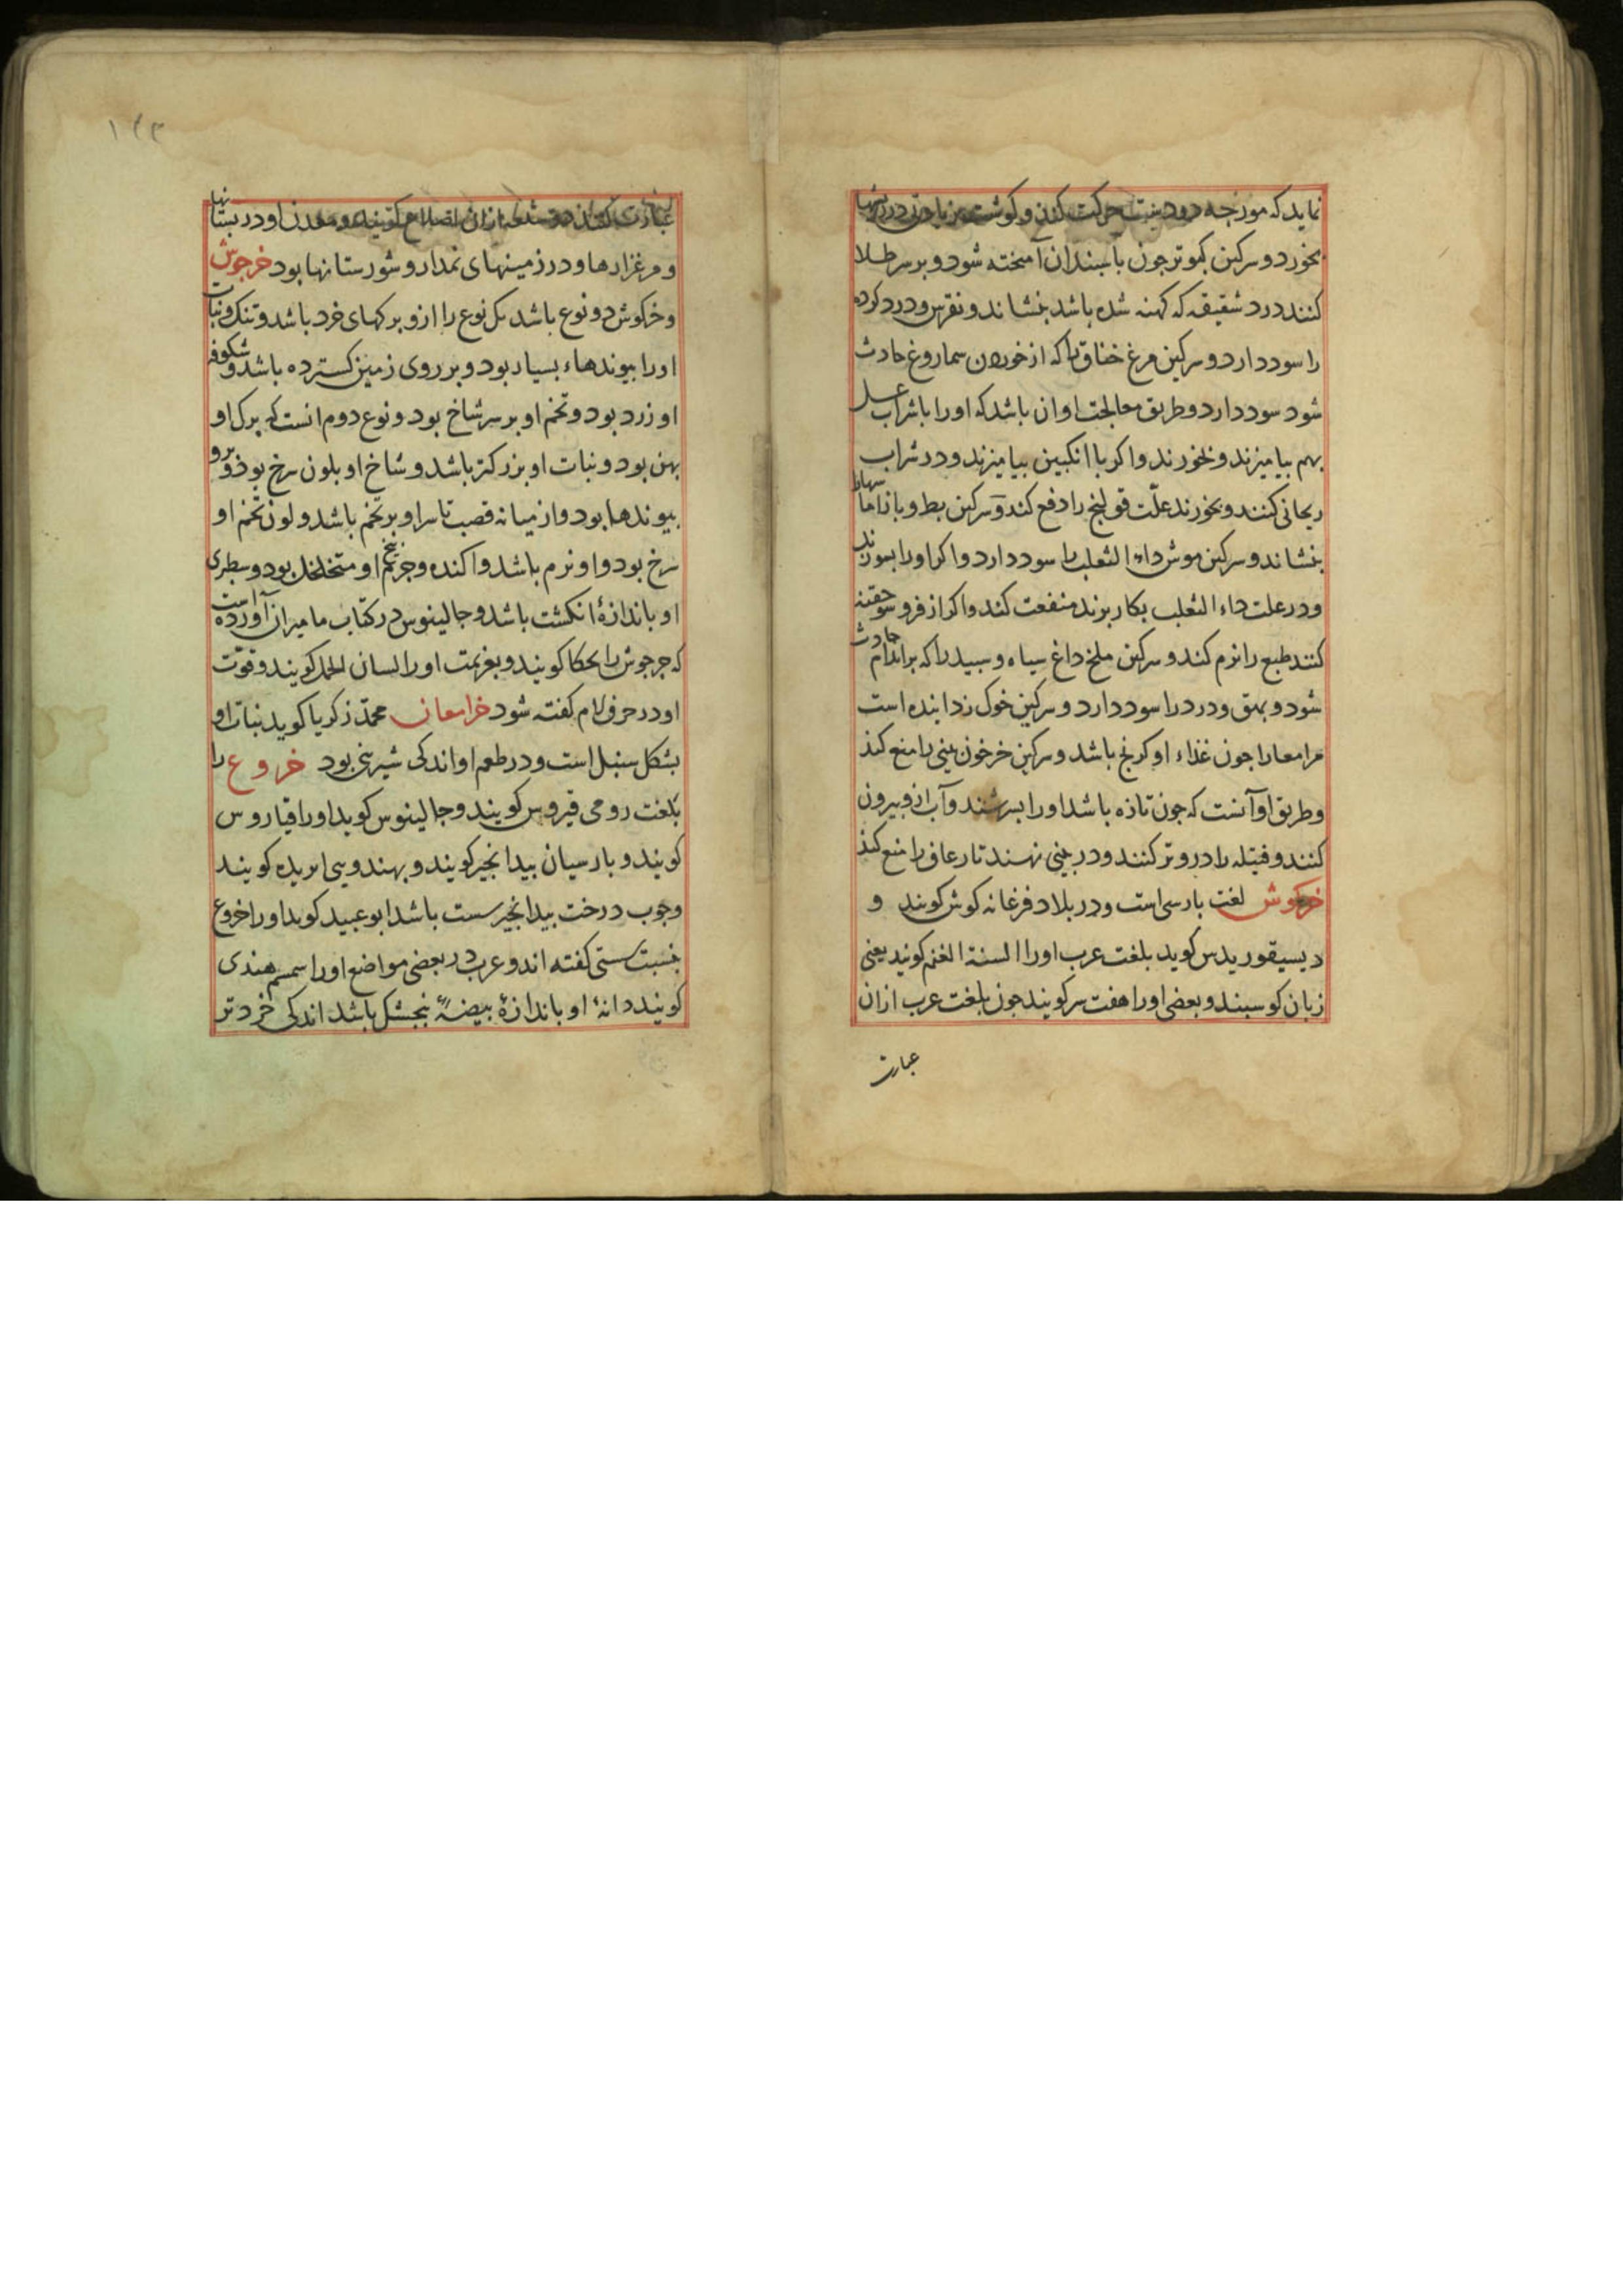 نماید که مورچه درو دست حرکت کند و کوشت
بخورد و سرکین کبوتر جون باسبندان آمیخته شود و بر سر طلا
کنند درد شقیقه که کهنه شده باشد بنشاند و نقرس و درد کرده
را سود دارد و سرکین مرغ خناق را که از خوردن سماروغ حادث
شود سود دارد و طریق معالجت او ان باشد که او را با شراب عسل
بهم بیامیزند و بخورند و اکر با انکبین بیامیزند و در شراب
ریحانی کنند و بخورند علّت قولنج را دفع کند و سرکین بط و باز اماسها را
بنشاند و سرکین موش داء الثعلب را سود دارد و اکر او را بسوزند
و در علت داء الثعلب بکار برند منفعت کند و اکر ازفرو سو حقنه
کنند طبع را نرم کند و سرکین ملخ داغ سیاه و سبید را که بر اندام حادث
شود و بهق و درد را سود دارد و سرکین خوک زداینده است
مر امعا را جون غذاء او کرنج باشد و سرکین خر خون بینی را منع کند
و طریق او آنست که جون تازه باشد او را بسرشند و آب ازو بیرون
کنند و فتیله را در و تر کنند و در بینی نهند تا رعاف را منع کند
خرکوش لغت بارسی است و در بلاد فرغانه کوش کویند و
دیسیقوریدس کوید بلغت عرب او را السنة الغنم کویند یعنی
زبان کوسبند و بعضی او را هفت سر کویند جون بلغت عرب ازان
عبارت
۱۴۳
عبارت کنند و معدن او در بستانها
و مرغزارها و در زمینهای نمدار و شورستانها بود خرجوش
و خرکوش دو نوع باشد یک نوع را ازو برکهای خرد باشد و تنک و نبات
او را بیوندهاء بسیار بود و بر روی زمین کسترده باشد و شکوفه
او زرد بود و تخم او بر سر شاخ بود و نوع دوم انست که برک او
بهن بود و نبات او بزرکتر باشد و شاخ او بلون سرخ بود و برو
بیوندها بود و از میانه قصب تا سر او بر تخم باشد و لون تخم او
سرخ بود و او نرم باشد و اکنده و جرم بیخ او متخلخل بود و سطبری
او باندازۀ انکشت باشد و جالینوس در کتاب مامیران آورده است
که جرجوش را بحکا کویند و بعزیمت او را لسان الحمل کویند و قوّت
او در حرف لام کفته شود خرامعان محمّد زکریا کوید نبات او
بشکل سنبل است و در طعم او اندکی شیرینی بود خروع را
بلغت رومی قیروس کویند و جالینوس کوید او را قیاروس
کویند و بارسیان بیدانجیر کویند و بهندوی ارید کویند
و جوب درخت بیدانجیر سست باشد ابو عبید کوید او را خروع
بنسبت سستی کفته اند و عرب در بعضی مواضع او را سمسم هندی
کویند دانۀ او باندازۀ بیضۀ بنجشک باشد اندکی خردتر